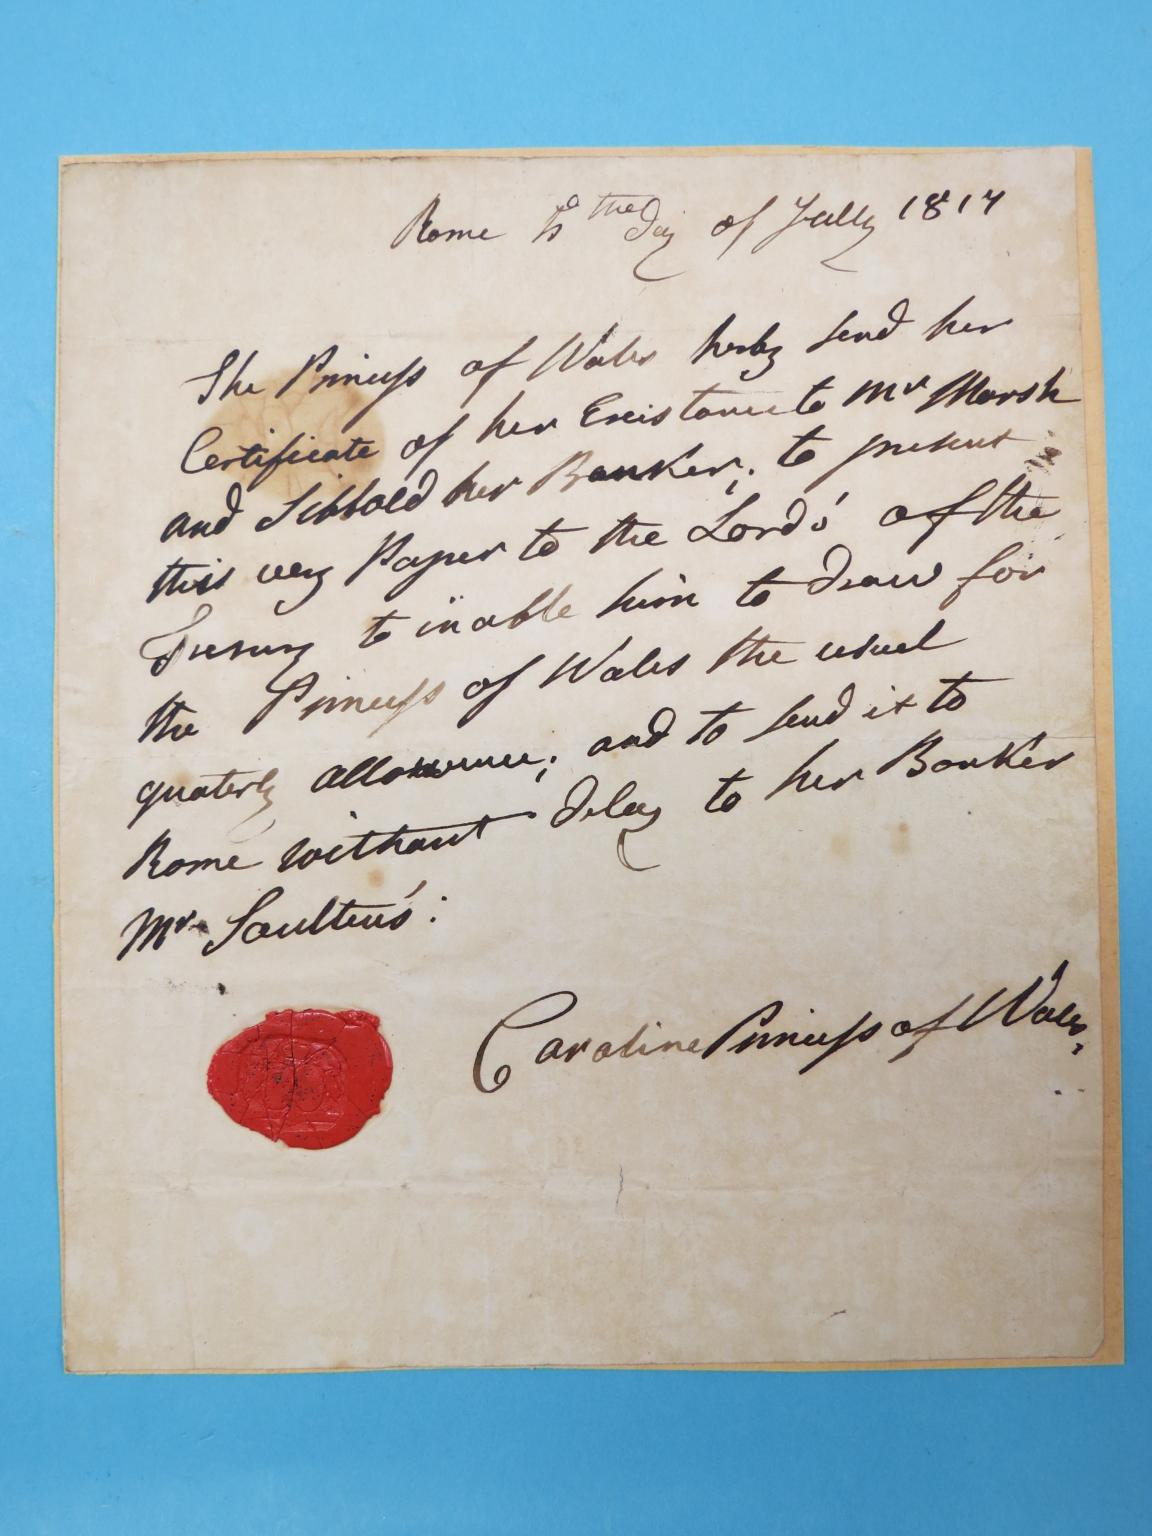 Rome the Day of Jully 1817
The Princess of Wales herby send her
Certificate of her Existance to Mr Marsh
and Sibbold her Banker; to present
this very Paper to the Lord's of the
Tresury to inable him to draw for
the Princess of Wales the usuel
quaterly allowence; and to send it to
Rome without delay to her Banker
Mr
Caroline Princess of Wales,